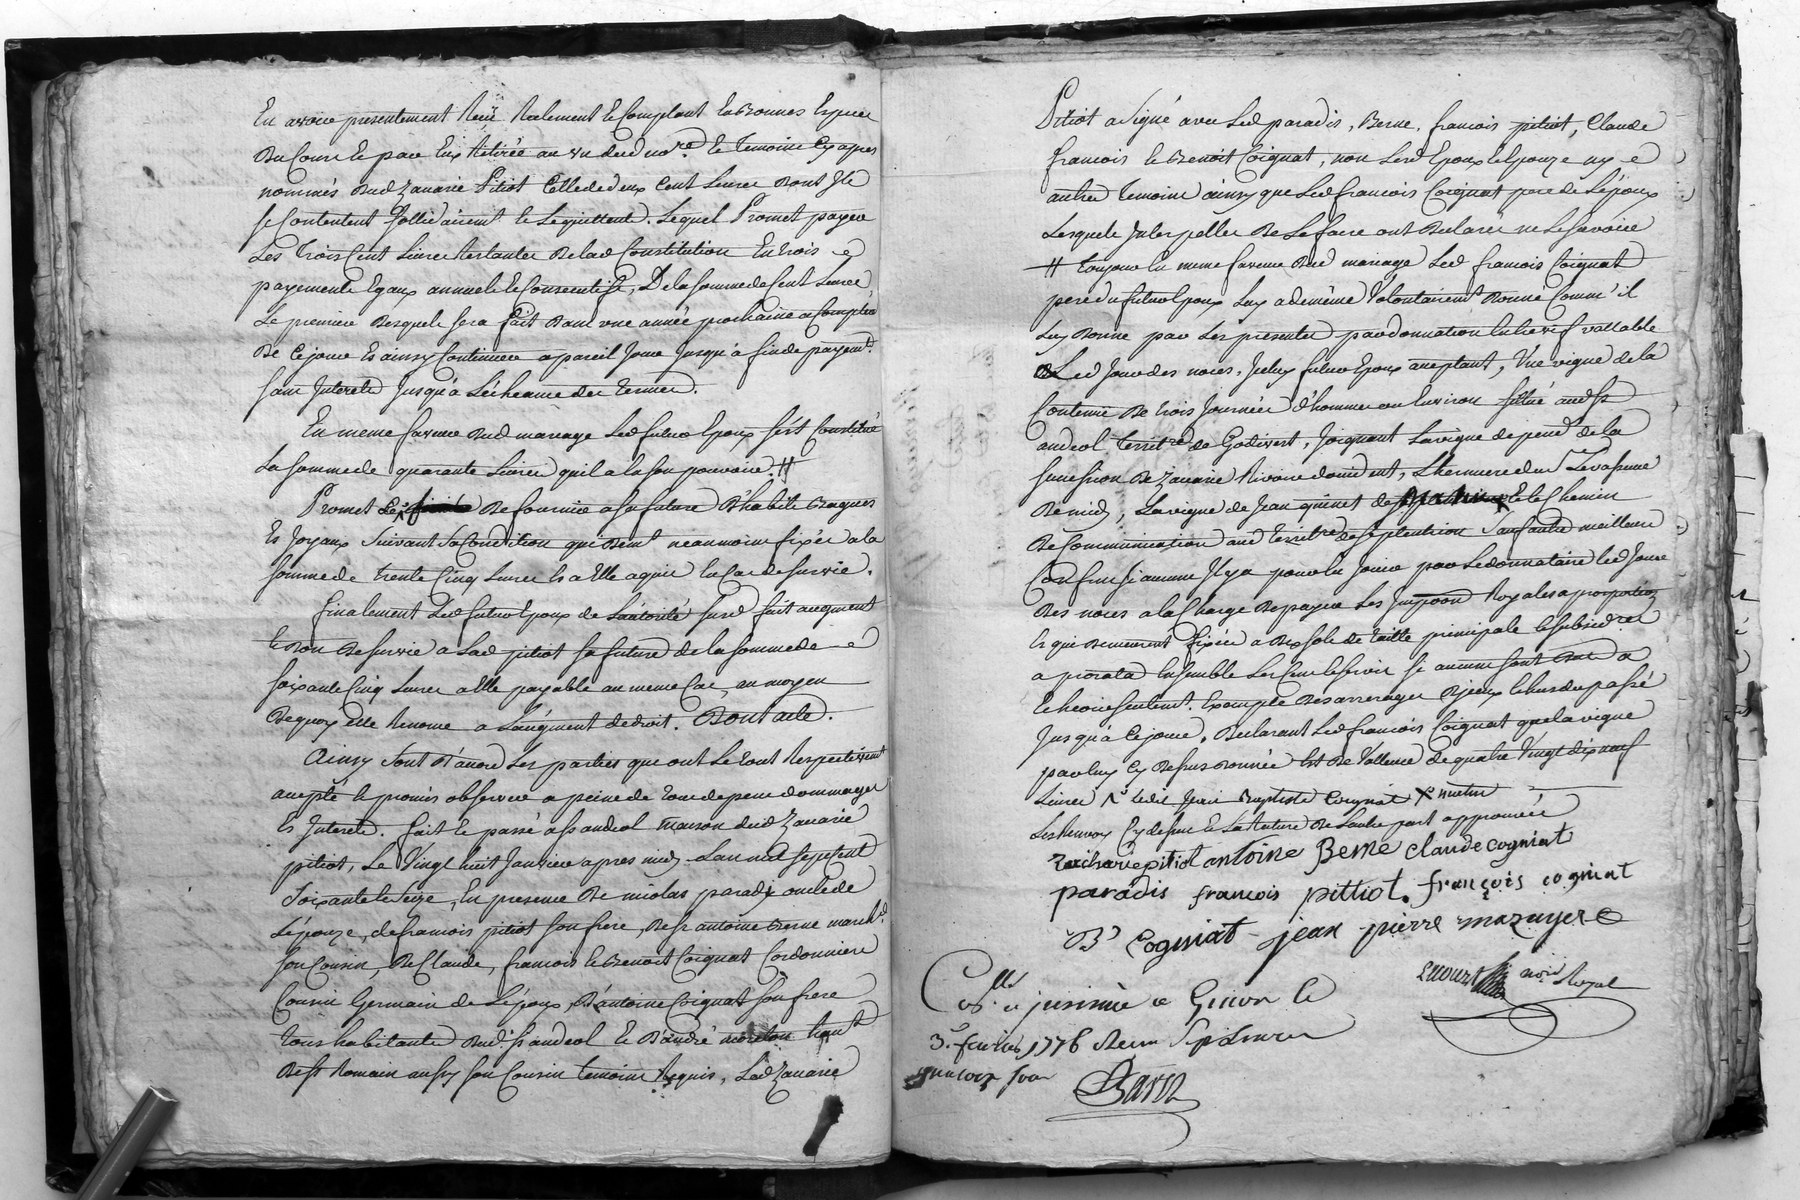 En avoir presentement Reçü Réelement et Comptant En bonnes Especes
Du Cours Et par Eux Retirée au vu dud no.re Et temoins Cy apres
nommés Dud Zacarie Pitiot Celle de deux Cent Livres Dont Ils
se Contentent Sollidairemt et Le quittent. Lequel Promet payer
Les Trois Cent Livres Restantes De lad Constitution En trois
payements Egaux annuels et Consecutifs, De la somme de Cent Livres,
Le premier Desquels sera fait Dans une année prochaine a Compter
De Ce jour Et ainsy Continuer a pareil Jour Jusqu'à fin de payemt.
sans Interets Jusqu'à L'écheance des termes.
En meme faveur Dud mariage Led futur Epoux s'est Constitué
La somme de quarante Livres qu'il a En son pouvoir. #
Promet De fournir a sa future D'habits Bagues
Et Joyaux Suivant Sa Condition qui Demt neanmoins fixés a la
somme de trente Cinq Livres Et a Elle aquis En Cas de survie.
finalement Led futur Epoux de L'autorité susd fait augment
Et Don De survie a Lad pitiot sa future de la somme de
soixante Cinq Livres a Elle payable au meme Cas, au moyen
De quoy Elle Renonce a L'augment de droit. Dont acte.
Ainsy Sont D'accord Les parties qui ont Le tout Respectivemt
accepté Et promis observer a peine de tous depens dommages
Et Interets. fait Et passé a St andeol maison dud Zacarie
pitiot, Le Vingt huit Janvier apres midy L'an mil sept Cent
Soixante et Seize, En presence De nicolas paradis oncle de
L'épouze, de francois pitiot son frere, De Sr antoine Berne march.d
son Cousin, De Claude, francois et Benoit Coignat Cordonniers
Cousins Germains de L'époux, D'antoine Coignat son frere
tous habitants Dud St andeol Et D'andré habt
De St Romain aussy son Cousin temoins Requis, Led Zacarie
Pitiot a Signé avec Led paradis, Berne, francois pitiot, Claude
francois et Benoit Coignat, non Lesd Epoux et Epouze ny
autres temoins ainsy que Led francois Coignat pere de L'époux
Lesquels Interpellés De Le faire ont Declaré ne Le savoir
# toujours En meme faveur Dud mariage Led francois Coignat
pere du futur Epoux Luy a de même Volontairemt Donné Comm'il
Luy Donne par Les presentes par donnation Entre vif vallable
Led Jour des noces, Icelluy futur Epoux acceptant, Une vigne de la
Contenue De trois Journées d'hommes ou Environ situé aud St
andeol territre de Godivert, Joignant La vigne depend.t de la
succession De Zacarie Rivoire d'orient,
De midy, La vigne de Jean guinet Et le Chemin
De Communication aud territre de septentrion Sauf autres meilleurs
Confins si aucuns Il y a pour En Jouir par Le donnataire led Jour
Des noces a la Charge De payer Les Imposons Royales a proportion
Et qui Demeurent fixées a Dix sols de taille principale et subsid.res
a prorata Ensemble Les Cens et servis si aucuns sont
a Echeoir seulemt. Exempte Des arrerages D'iceux et lus du passé
Jusqu'à Ce jour, Declarant Led francois Coignat que la vigne
par luy Cy Dessus donnée Est De Valleur de quatre Vingt dix neuf
Livres Ledit Jean Baptiste Coignat
Les Renvoy Cy dessus Et La Rature De L'autre part approuvée
zacharie pitiot antoine Berne claude cogniat
paradis francois pittiot. françois cogniat
B' Cogniat jean pierre mazuyer
noire Royal
Con.lle et insinué a Givor le
3.e fevrier 1776 Receu Sept Livres